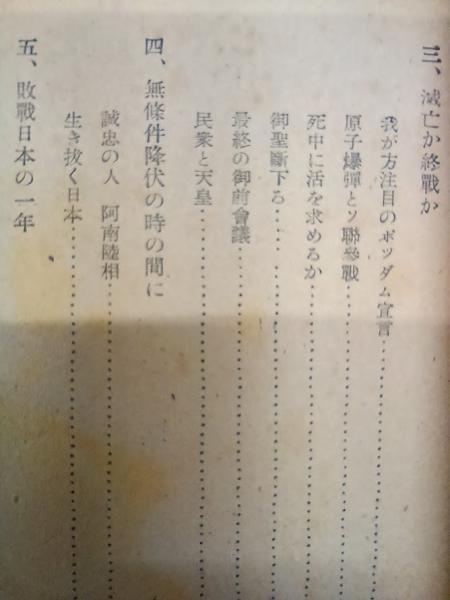 三、滅亡か終戰か
我が方注目のポツダム宣言
原子爆彈とソ聯參戰
死中に活を求めるか
御聖斷下る
最終の御前會議
民衆と天皇
四、無條件降伏の時の間に
誠忠の人 阿南陸相
生き拔く日本
五、敗戰日本の一年